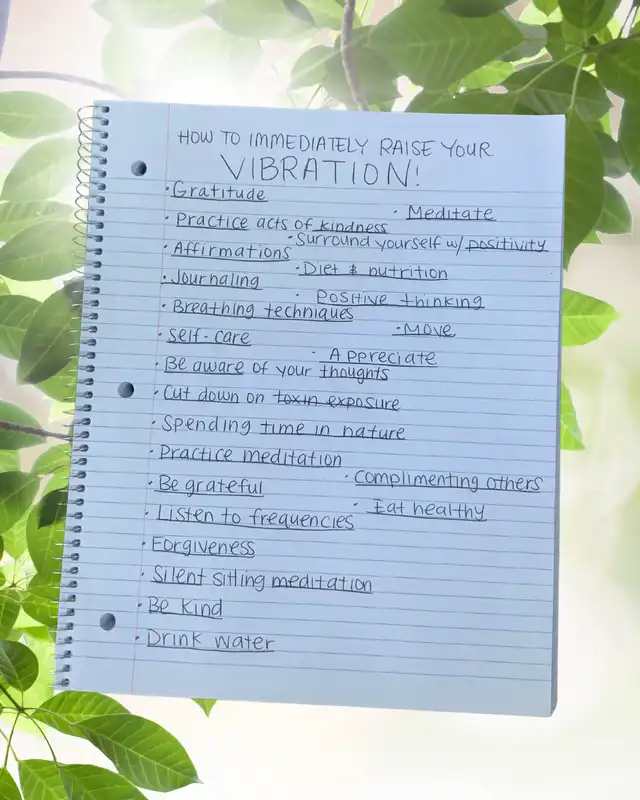 HOW TO IMMEDIATELY RAISE YOUR
VIBRATION!
· Gratitude
· Meditate
· Practice acts of kindness
· Surround yourself w/ positivity
· Affirmations
· Diet & nutrition
· Journaling
· Positive thinking
· Breathing techniques
· Move
· Self-care
· Appreciate
· Be aware of your thoughts
· Cut down on toxin exposure
· Spending time in nature
· Practice meditation
· Complimenting others
· Be grateful
· Eat healthy
· Listen to frequencies
· Forgiveness
· Silent sitting meditation
· Be kind
· Drink water